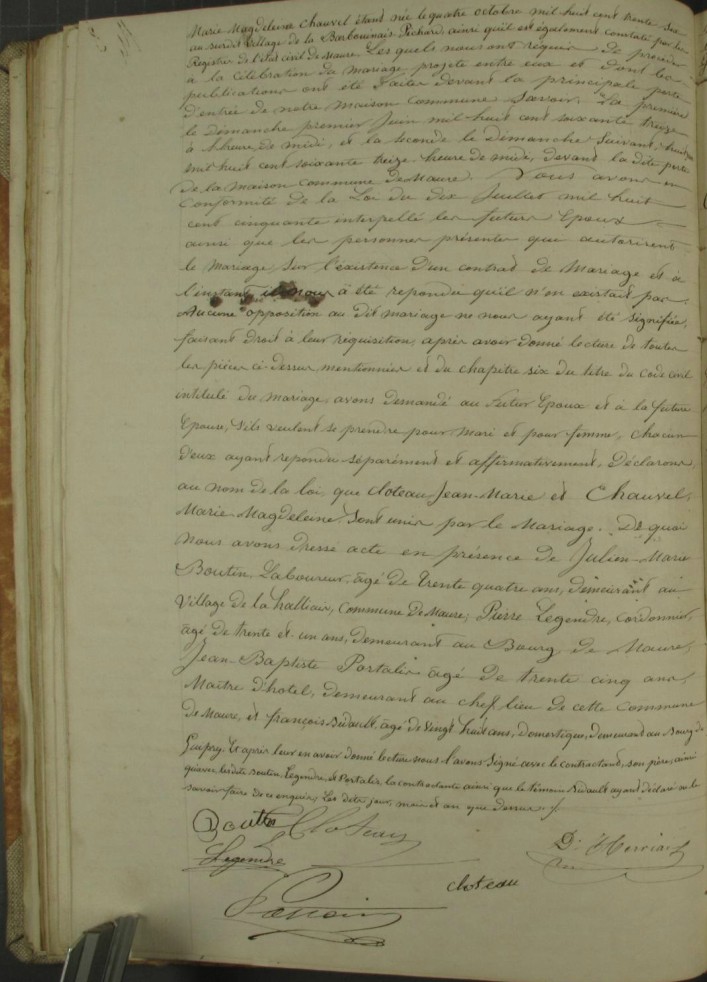 Marie Magdeleine Chauvel étant née le quatre octobre mil huit cent trente six
au susdit village de la Barbotinais Pichard, ainsi qu'il est également constaté par les
Registres de l'état civil de Maure. Les quels nous ont requis de procéder
à la célébration du mariage projeté entre eux et dont les
publications ont été faites devant la principale porte
d'entrée de notre maison commune, Savoir: La première
le Dimanche premier Juin mil huit cent soixante treize
à heure de midi, et la seconde le Dimanche suivant, huit juin
mil huit cent soixante treize heure de midi, devant la dite porte
de la maison commune de Maure. Nous avons en
conformité de la Loi du dix Juillet mil huit
cent cinquante interpellé les futurs Epoux
ainsi que les personnes présentes que autorisent
le mariage, sur l'existence d'un contrat de Mariage et à
l'instant il nous a été repondu qu'il n'en existait pas.
Aucune opposition au dit mariage ne nous ayant été signifiée,
faisant droit à leur requisition, après avoir donné lecture de toutes
les pièces ci-dessus mentionnées et du chapitre six du titre du code civil
intitulé du mariage, avons demandé au Futur Epoux et à la future
Epouse, s'ils veulent se prendre pour mari et pour femme, chacun
d'eux ayant repondu séparément et affirmativement, Déclarons,
au nom de la loi, que Cloteau Jean-Marie et Chauvel,
Marie-Magdeleine, sont unis par le Mariage. De quoi
Nous avons dressé acte en présence de Julien-Marie
Boutin, Laboureur, âgé de trente quatre ans, demeurant au
village de la halliais, Commune de Maure; Pierre Legendre, Cordonnier,
âgé de trente et un ans, demeurant au Bourg de Maure,
Jean-Baptiste Portalis âgé de trente cinq ans,
Maître d'hotel, demeurant au chef lieu de cette Commune
de Maure, et françois Bidault, âgé de vingt huit ans, domestique, demeurant au Bourg de
Guipry. Et après leur en avoir donné lecture nous l'avons signé avec le contractant, son père, ainsi
que les dits Boutin, Legendre, et Portalis, la contractante ainsi que le témoin Bidault ayant déclaré ne le
savoir faire de ce enquis, Les dits jour, mois et an que dessus ./.
Boutin Cloteau
Legendre
Cloteau